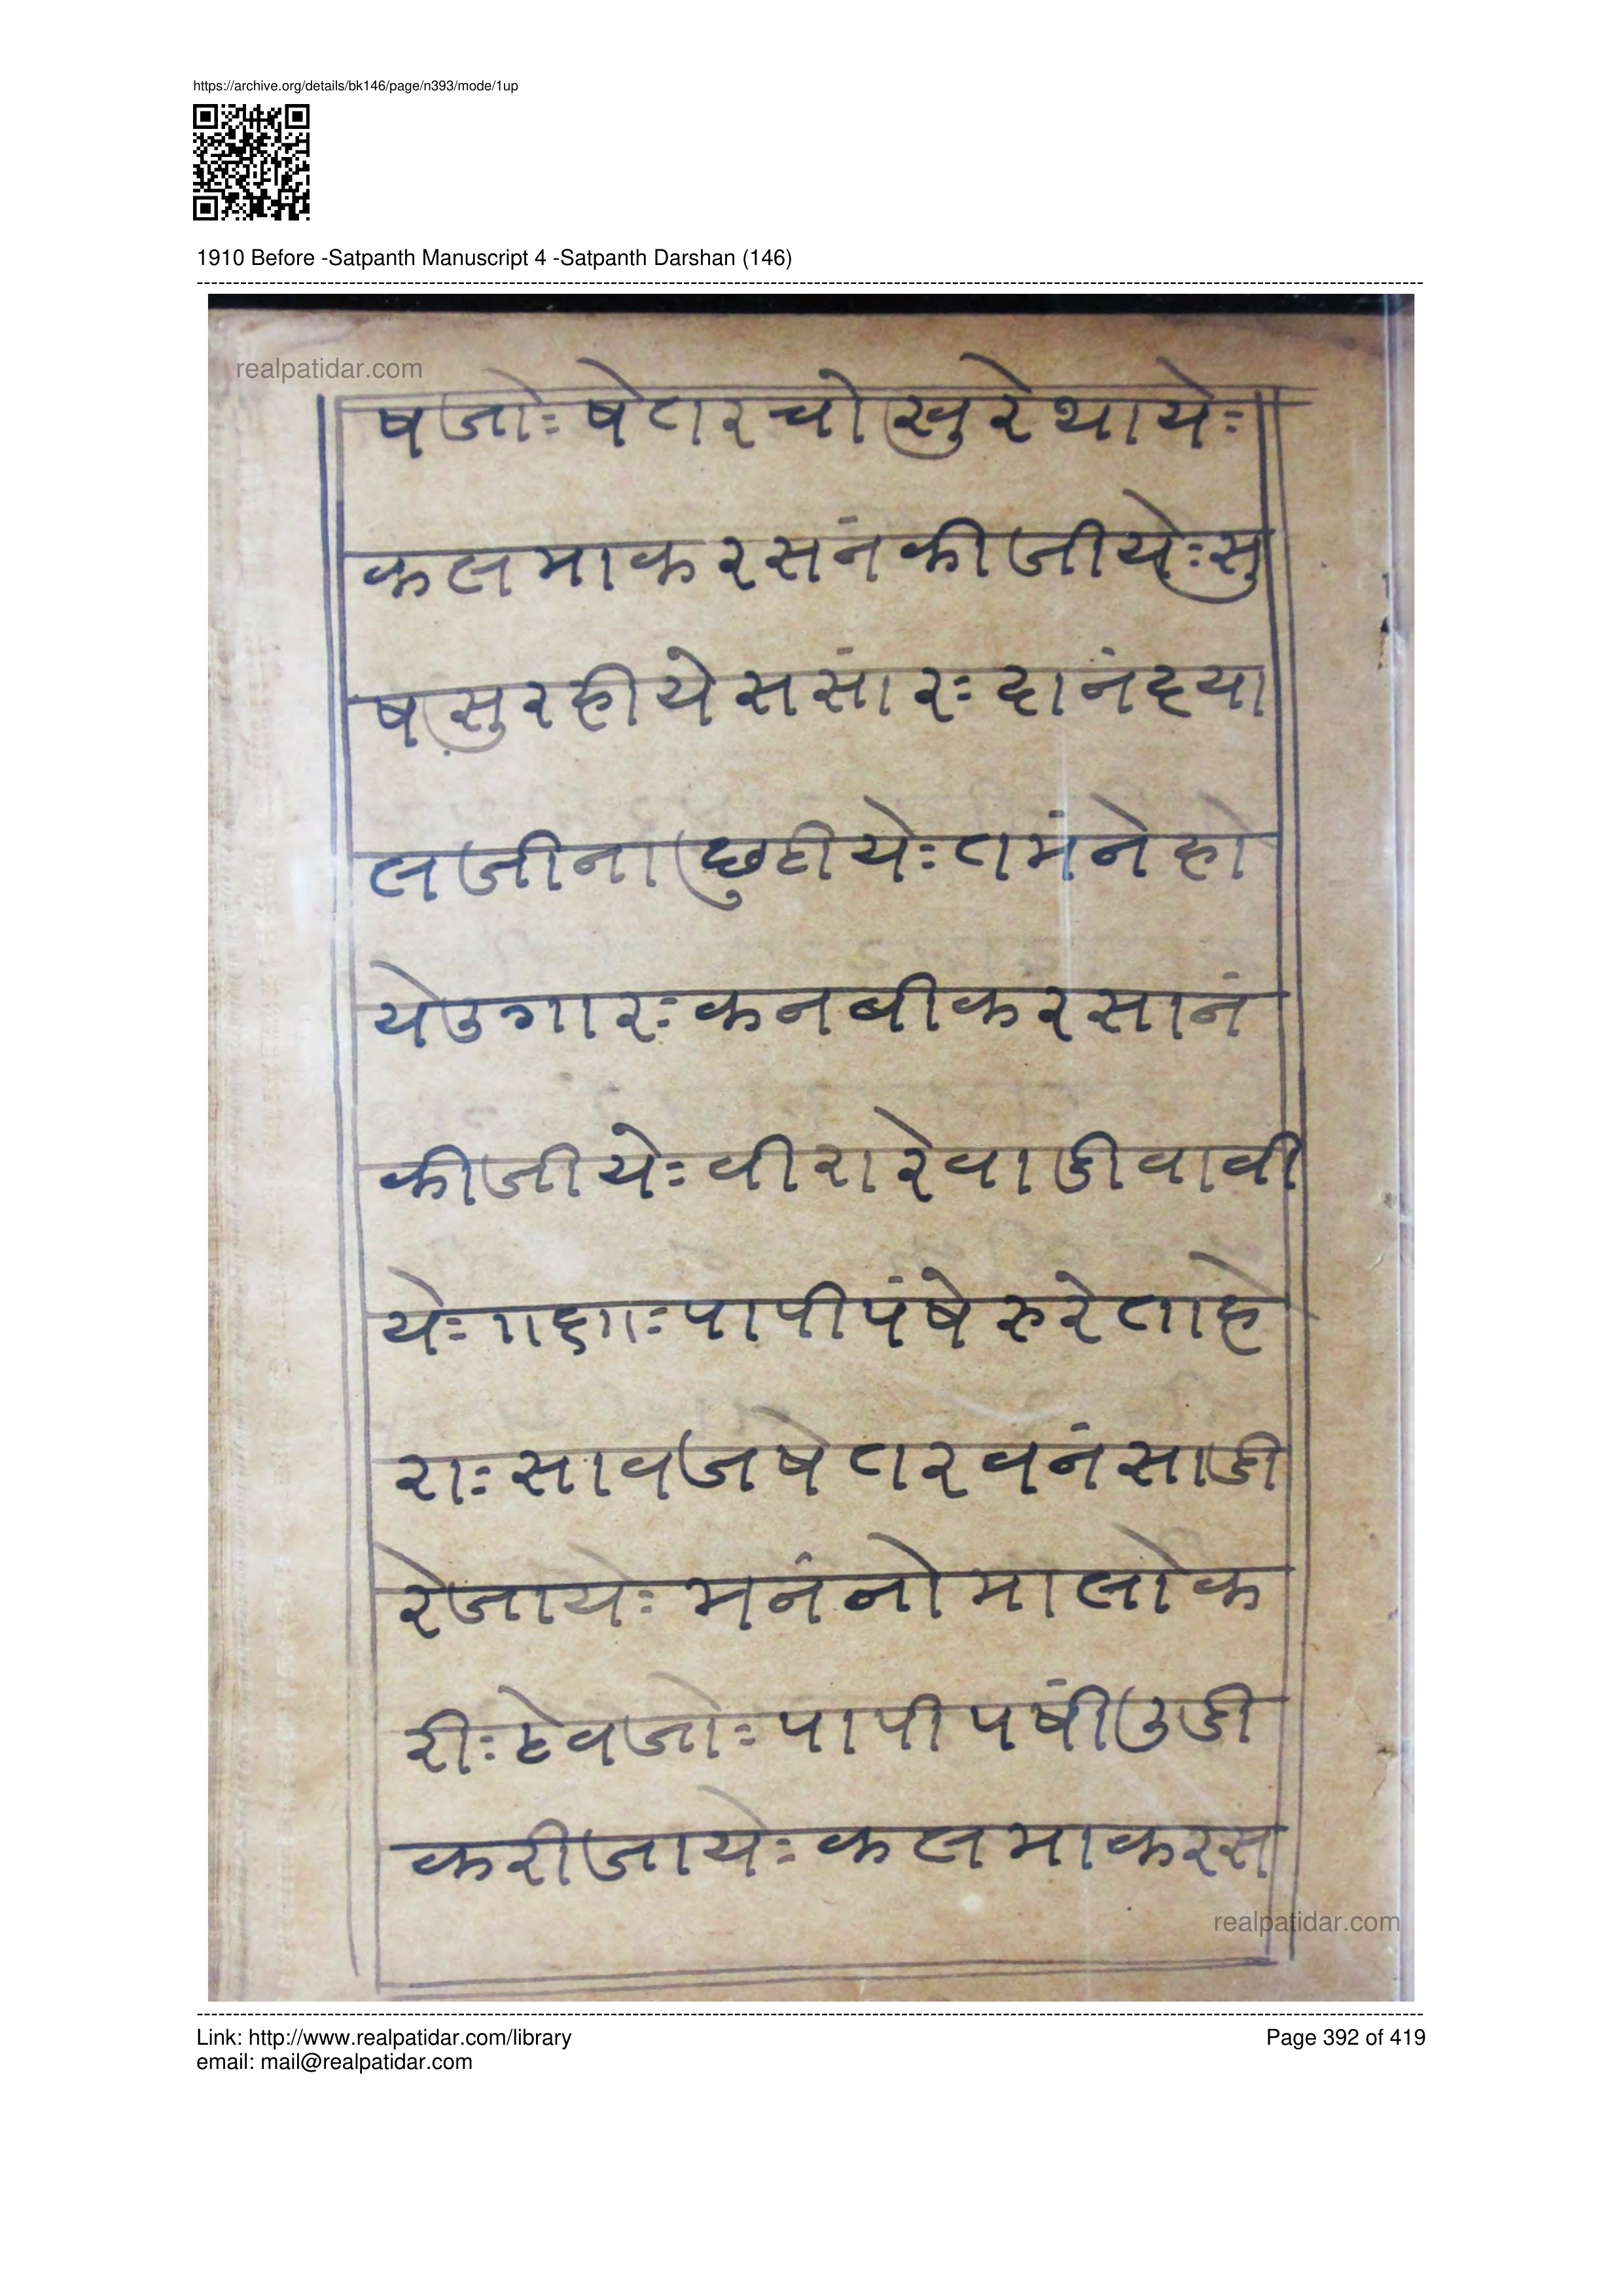 https://archive.org/details/bk146/page/n393/mode/1up
1910 Before -Satpanth Manuscript 4 -Satpanth Darshan (146)
realpatidar.com
षजोः षेतरचोखुरेथायेः
कलमाकरसंनकीजीयेःसु
षसुरहीयेससांरः दानंदया
लजीनाछुटीयेः तमंनेहो
येउगारः कनबीकरसानं
कीजीयेः वीरारेवाडीवावी
येः गद्राः पापीपंषेरुरेताहे
राः सावजषेतरवनंसाडी
रेजायेः मनंनोमालोक
रीः टेवजोः पापीपषींउडी
करीजायेः कलमाकरस
realpatidar.com
Link: http://www.realpatidar.com/library
Page 392 of 419
email: mail@realpatidar.com